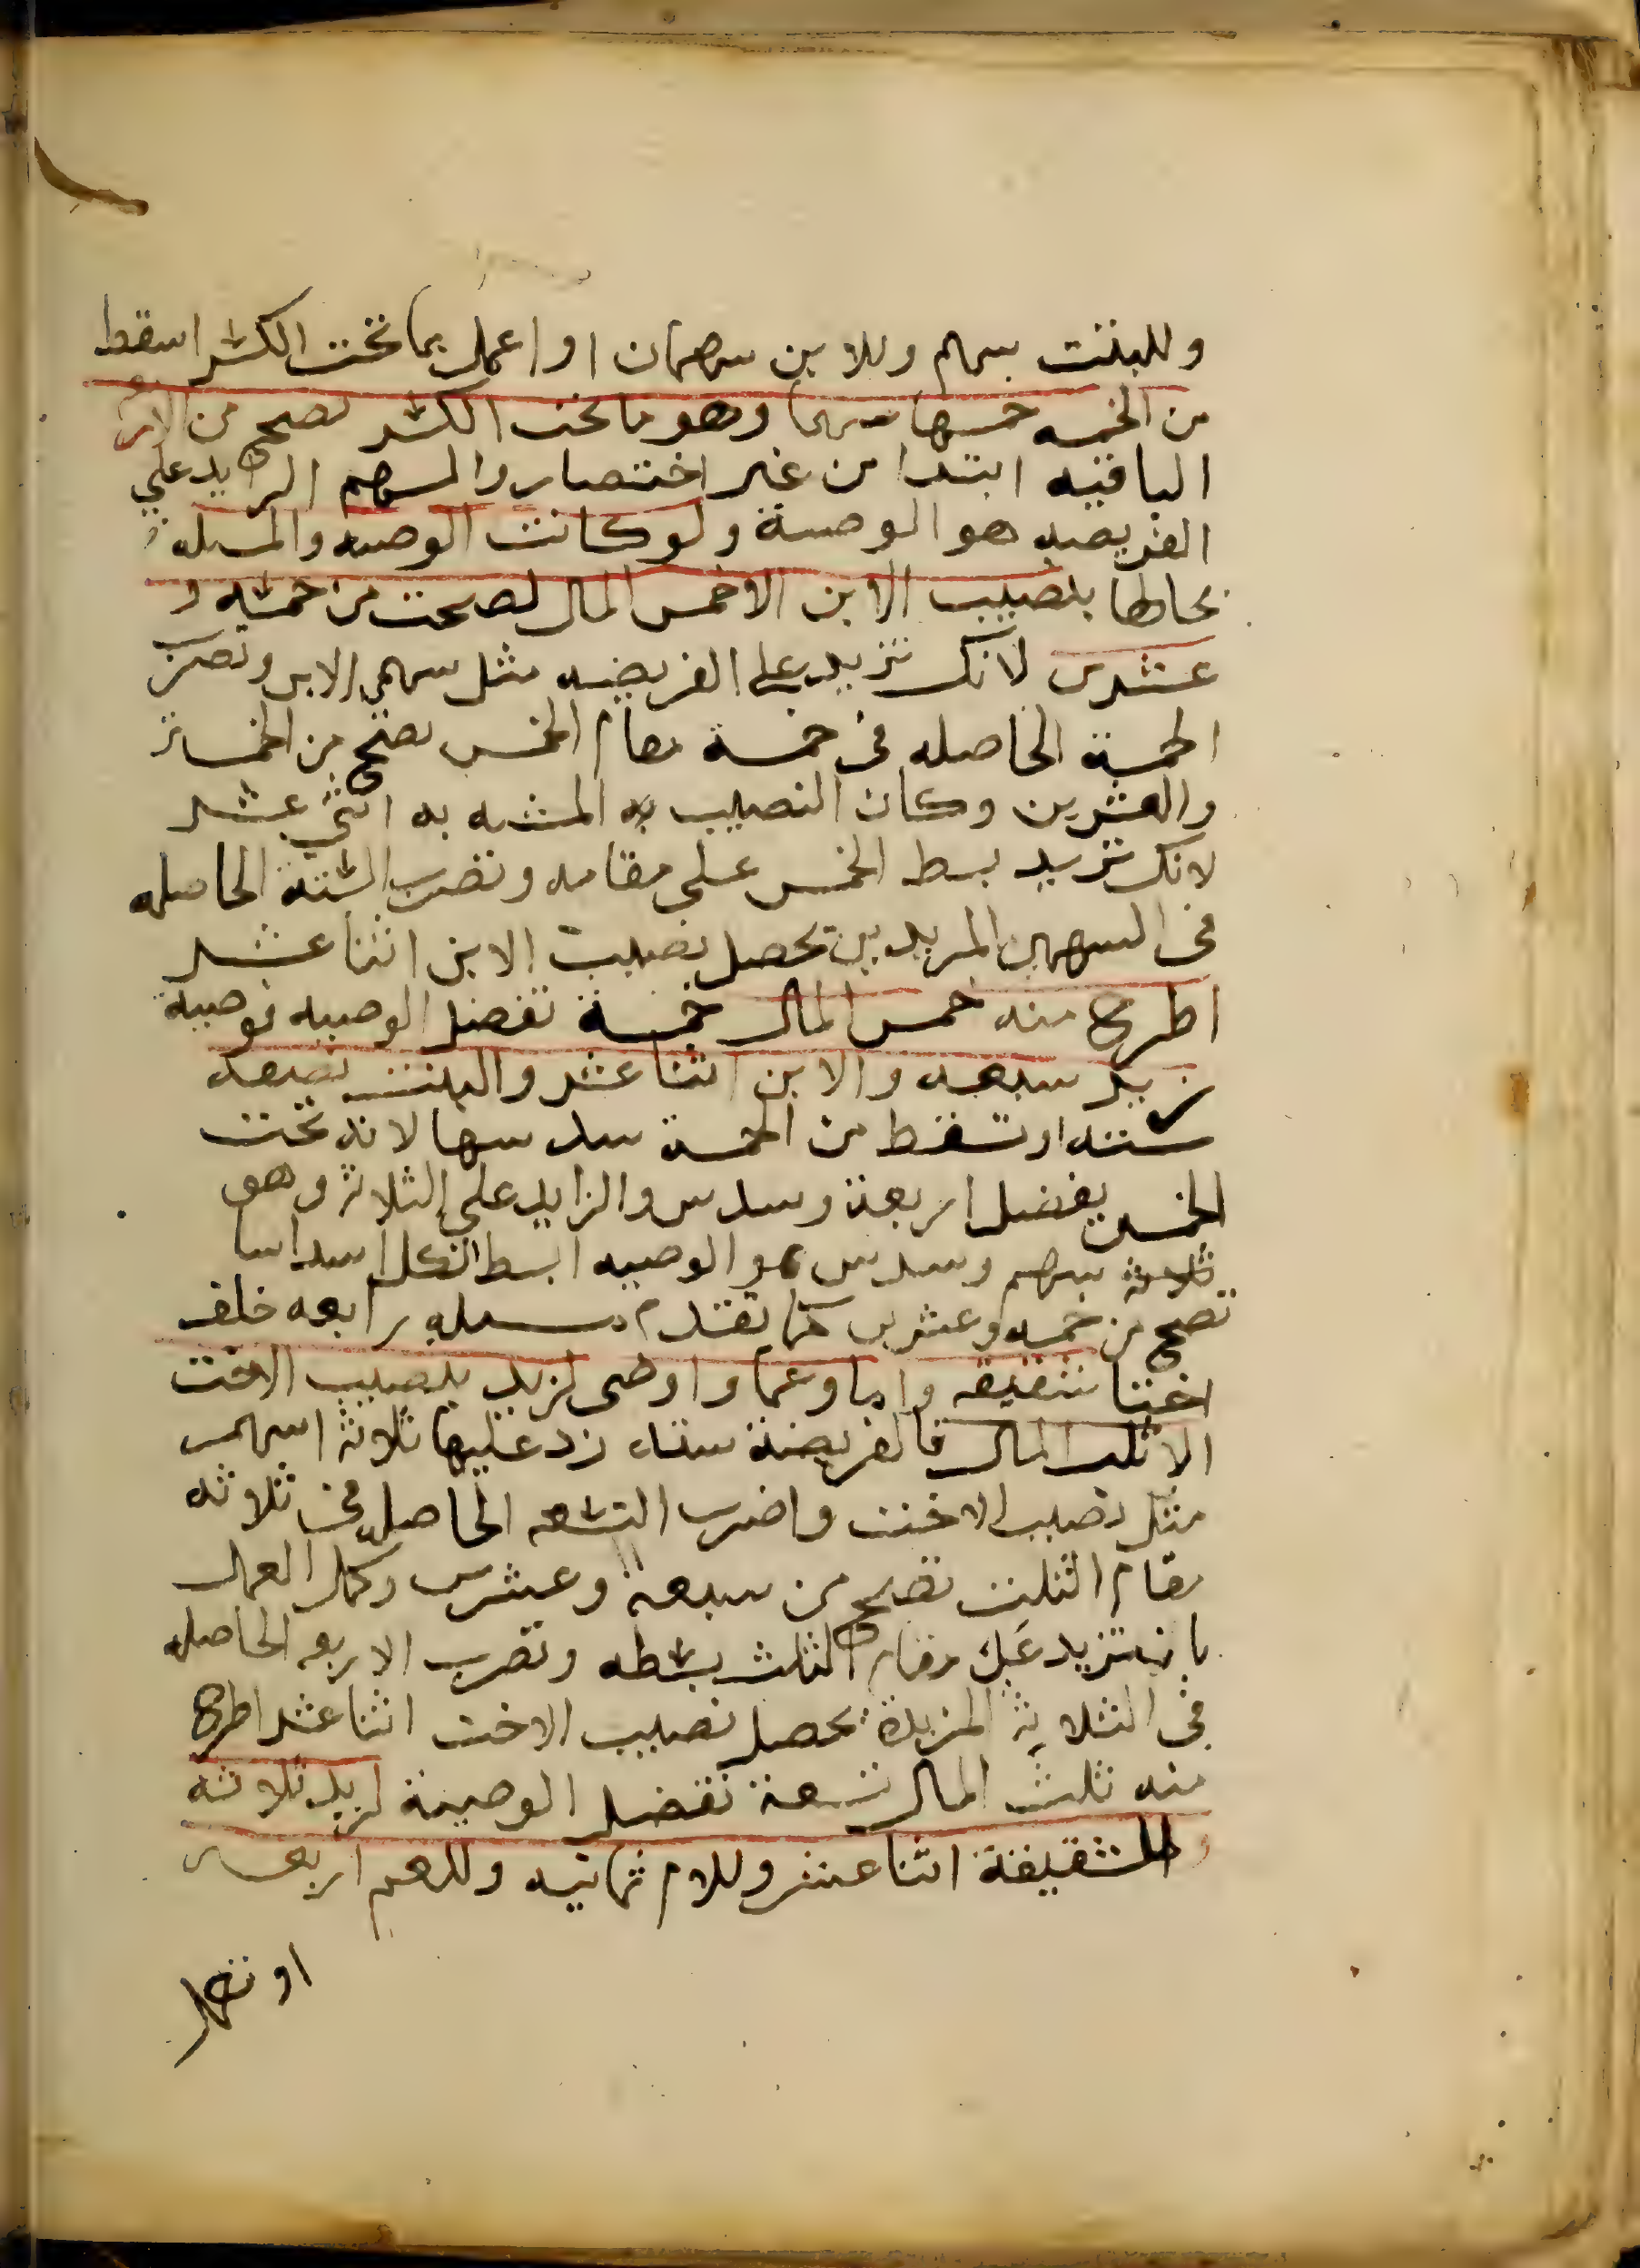 وللبنت سهم وللابن سهمان او اعمل بما تحت الكسر اسقط
من الخمسه خمسها سهما وهو ما تحت الكسر تصح من الاربعة
الباقيه ابتدا من غير اختصار والسهم الزايد علي
الفريضه هو الوصية ولو كانت الوصيه والمسله
بحالها بنصيب الابن الا خمس المال لصحت من خمسه و
عشرين لانك تزيد علي الفريضه مثل سهمي الابن وتضرب
الخمسة الحاصله في خمسة مقام الخمس تصح من الخمسة
والعشرين وكان النصيب به المشبه به اثني عشر
لانك تزيد بسط الخمس علي مقامه وتضرب الستة الحاصله
في السهمين المزيدين يحصل نصيب الابن اثنا عشر
اطرح منه خمس المال خمسة تفضل الوصيه فوصية
زيد سبعه والابن اثنا عشر والبنت نصيبه
سته او تسقط من الخمسة سدسها لانه تحت
الخمس يفضل اربعة وسدس والزايد علي الثلاثة وهو
ثلاثة سهم وسدس هو الوصيه ابسط الكل اسداسا
تصح من خمسه وعشرين كما تقدم مسله رابعه خلف
اختا شقيقه واما وعما واوصي لزيد بنصيب الاخت
الا ثلث المال فالفريضة سته زد عليها ثلاثة اسهم
مثل نصيب الاخت واضرب التسعه الحاصله في ثلاثه
مقام الثلث تصح من سبعة وعشرين وكمل العمل
بان تزيد علي مقام الثلث بسطه وتضرب الاربعه الحاصله
في الثلاثة المزيدة يحصل نصيب الاخت اثنا عشر اطرح
منه ثلث المال تسعة تفضل الوصية لزيد ثلاثة
وللشقيقة اثنا عشر وللام ثمانيه وللعم اربعه
او